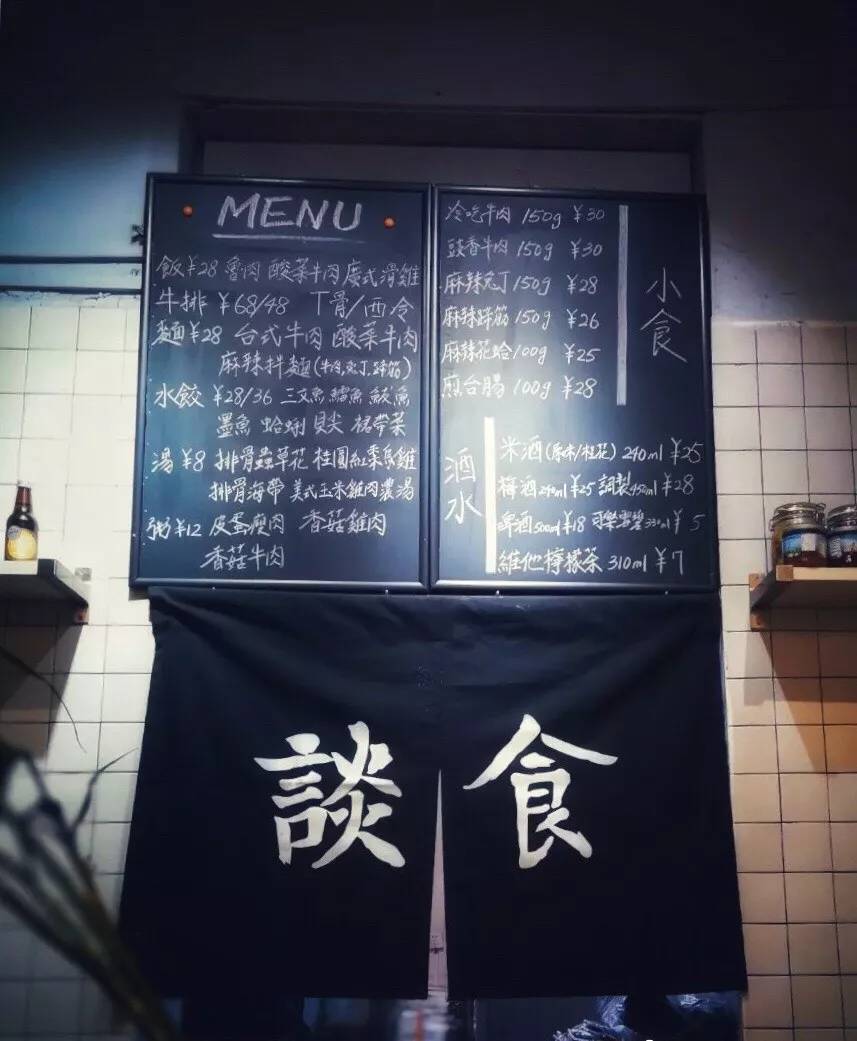 MENU
飯¥28 魯肉 酸菜牛肉 廣式滑雞
牛排 ¥68/48 丁骨/西冷
麵¥28 台式牛肉 酸菜牛肉
麻辣拌麵(牛肉,兔丁,蹄筋)
水餃 ¥28/36 三文魚 鱈魚 鮁魚
墨魚 蛤蜊 貝尖 裙帶菜
湯¥8 排骨蟲草花 桂圓紅棗烏雞
排骨海帶 美式玉米雞肉濃湯
粥¥12 皮蛋瘦肉 香菇雞肉
香菇牛肉
小食
冷吃牛肉 150g ¥30
豉香牛肉 150g ¥30
麻辣兔丁 150g ¥28
麻辣蹄筋 150g ¥26
麻辣花蛤 100g ¥25
煎台腸 100g ¥28
酒水
米酒(原味/桂花) 240ml ¥25
梅酒240ml¥25 調製450ml¥28
啤酒500ml¥18 可樂雪碧330ml¥5
維他檸檬茶 310ml ¥7
談食